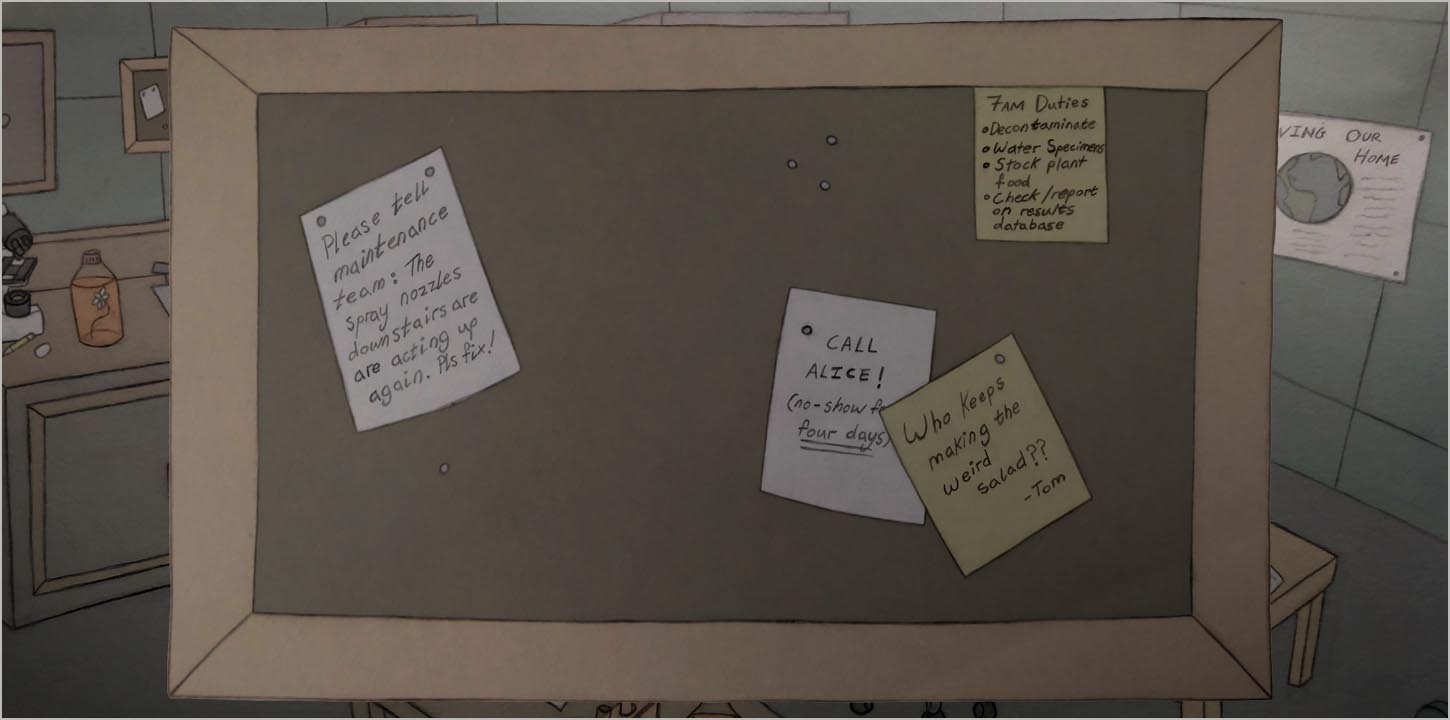 Please tell
maintenance
team: The
spray nozzles
downstairs are
are acting up
again. Pls fix!
7AM Duties
• Decontaminate
• Water Specimens
• Stock plant
food
• Check/report
on results
database
CALL
ALICE!
(no-show
four days)
Who keeps
making the
weird
salad??
-Tom
OUR
HOME